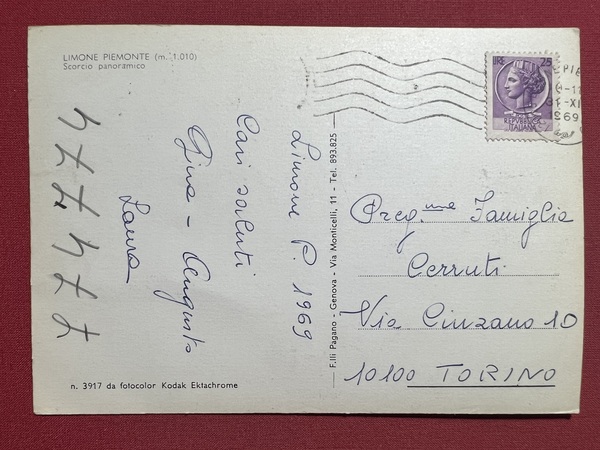 LIMONE PIEMONTE (m. 1.010)
Scorcio panoramico
Limone P. 1969
Cari saluti
Gina - Augusto
Laura
F.lli Pagano - Genova - Via Monticelli, 11 - Tel. 893.825
LIRE 25
REPVBBLICA
ITALIANA
Preg.me Famiglia
Cerruti
Via Cinzano 10
10100 TORINO
n. 3917 da fotocolor Kodak Ektachrome